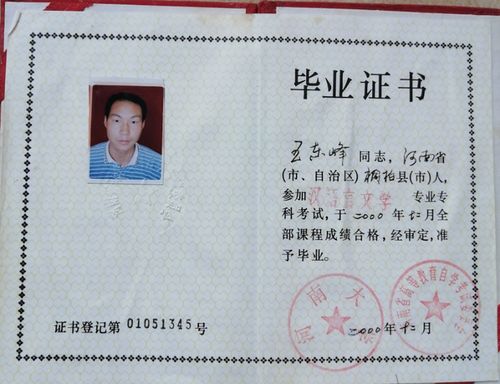 毕业证书
王东峰同志，河南省
(市、自治区)桐柏县(市)人，
参加汉语言文学专业专
科考试，于二000年十二月全
部课程成绩合格，经审定，准
予毕业。
河南大
河南省高等教育自学考试
二000年十二月
证书登记第01051345号